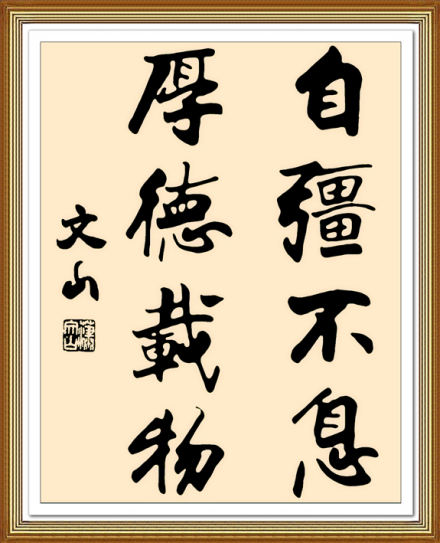 自彊不息
厚德載物
文山